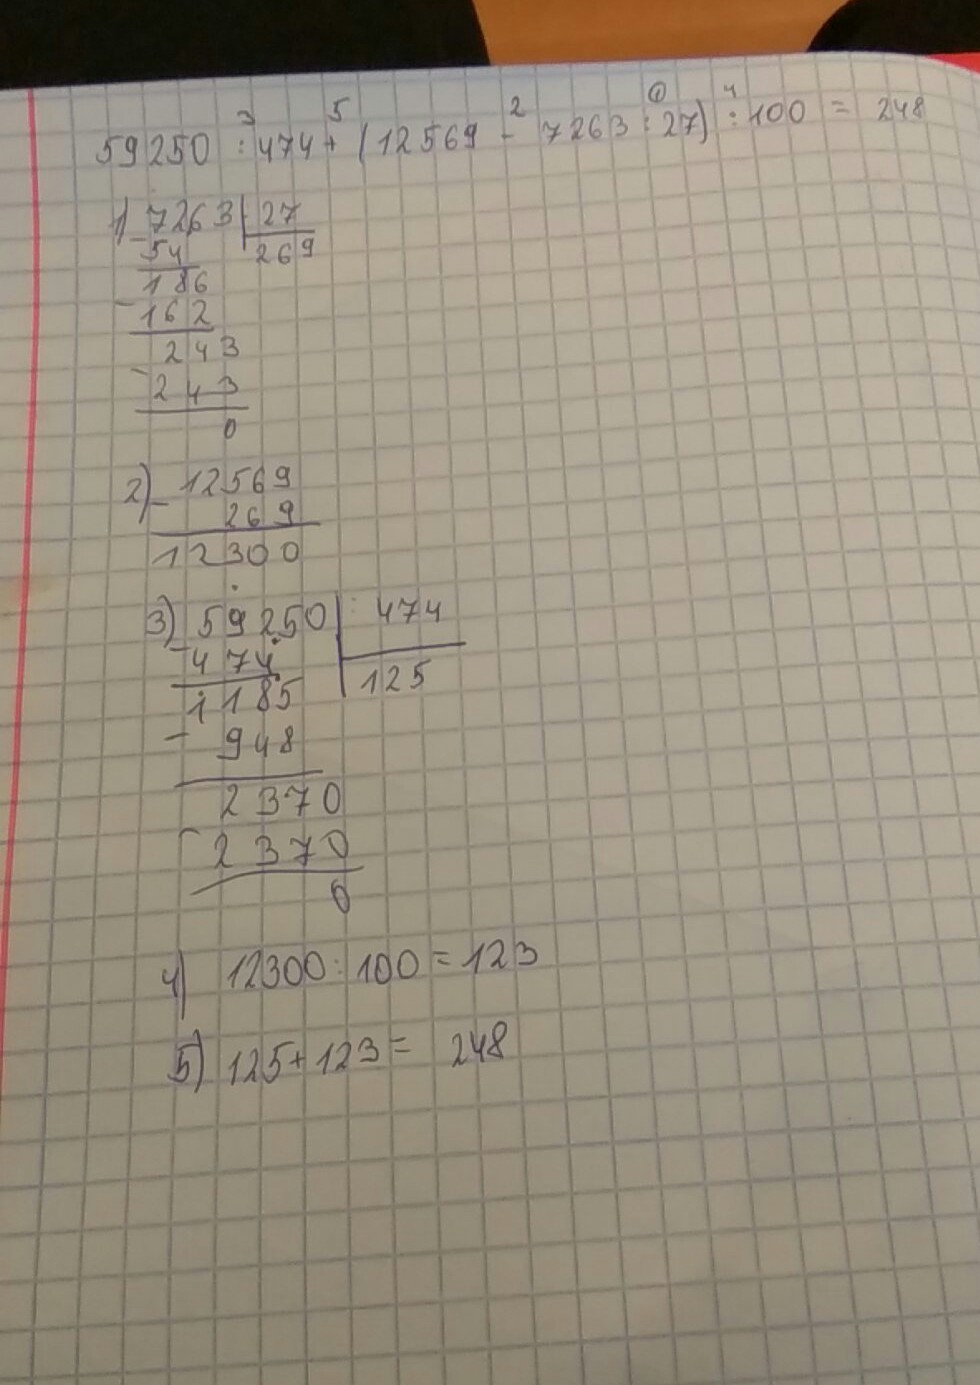 59250 : 474 + (12569 - 7263 : 27) : 100 = 248
3 5 2 1 4
1) 7263 | 27
- 54 269
186
- 162
243
- 243
0
2) - 12569
269
12300
3) 59250 | 474
- 474 125
1185
- 948
2370
- 2370
0
4) 12300 : 100 = 123
5) 125 + 123 = 248